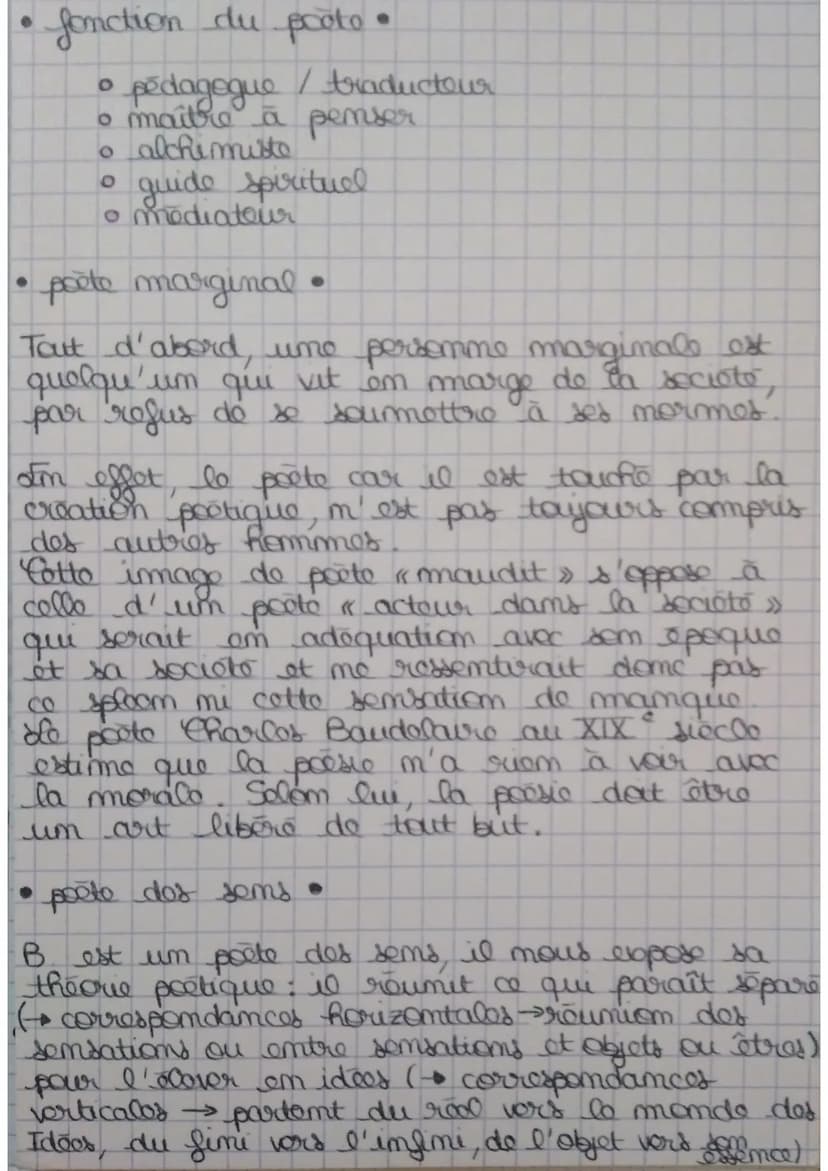 • fonction du poète •
○ pédagogue / traducteur
○ maître à penser
○ alchimiste
○ guide spirituel
○ médiateur
• poète marginal •
Tout d'abord, une personne marginale est
quelqu'un qui vit en marge de la société,
par refus de se soumettre à ses normes.
En effet, le poète car il est touché par la
création poétique, n'est pas toujours compris
des autres hommes.
Cette image de poète « maudit » s'oppose à
celle d'un poète « acteur dans la société »
qui serait en adéquation avec son époque
et sa société et ne ressentirait donc pas
ce spleen ni cette sensation de manque.
Le poète Charles Baudelaire au XIXe siècle
estime que la poésie n'a rien à voir avec
la morale. Selon lui, la poésie doit être
un art libéré de tout but.
• poète des sens •
B est un poète des sens, il nous expose sa
théorie poétique : il réunit ce qui paraît séparé
(→ correspondances horizontales → réunion des
sensations ou entre sensations et objets ou êtres)
pour l'élever en idées (→ correspondances
verticales → partent du réel vers le monde des
Idées, du fini vers l'infini, de l'objet vers son
essence)